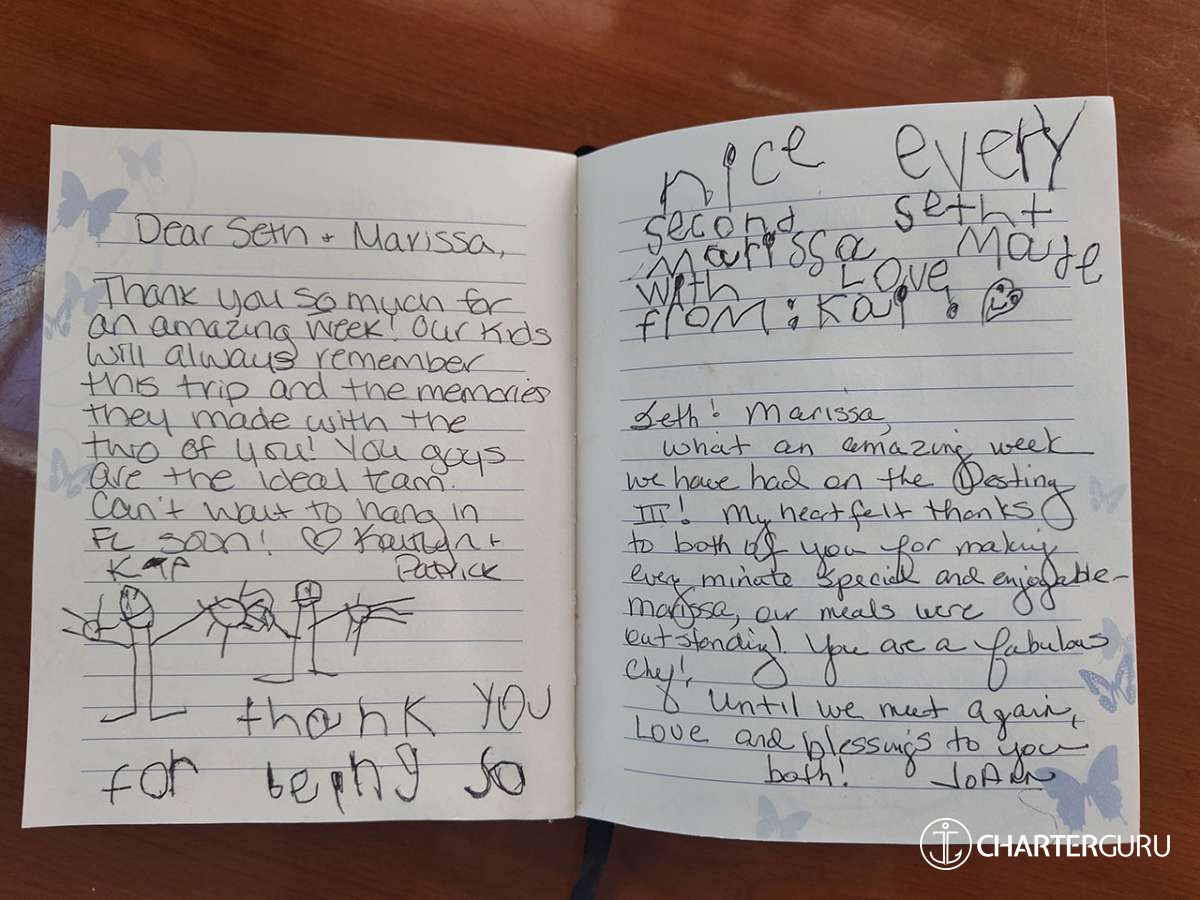 Dear Seth + Marissa,
Thank you so much for
an amazing week! Our kids
will always remember
this trip and the memories
they made with the
two of you! You guys
are the ideal team.
Can't wait to hang in
FL soon! ♡ Kaitlyn +
Patrick
thank you
for being so
nice every
second seth +
Marissa Made
with Love
from: Kai! ☺
Seth! Marissa,
What an amazing week
we have had on the Destiny
III! My heartfelt thanks
to both of you for making
every minute special and enjoyable-
Marissa, our meals were
outstanding! You are a fabulous
Chef!
Until we meet again,
Love and blessings to you
both! JoAnn
CHARTERGURU